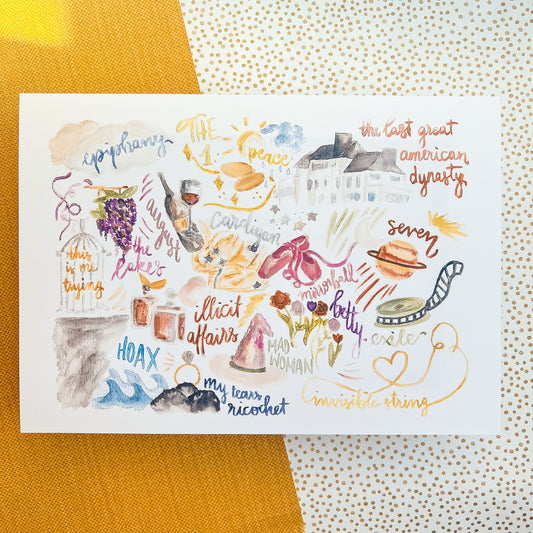 epiphany
THE
1
peace
the last great
american
dynasty
august
cardigan
seven
the
lakes
this
is me
trying
mirrorball
illicit
affairs
betty
exile
MAD
WOMAN
HOAX
my tears
ricochet
invisible string